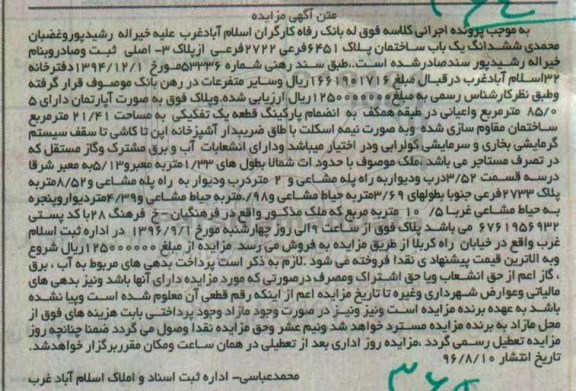 متن آگهی مزایده
به موجب پرونده اجرائی کلاسه فوق له بانک رفاه کارگران اسلام آبادغرب علیه خیراله رشیدپوروغضبان
محمدی ششدانگ یک باب ساختمان پلاک ۶۴۵۱فرعی ۲۷۲۲فرعی ازپلاک ۳- اصلی ثبت وصادروبنام
خیراله رشیدپور سندصادرشده است..طبق سند رهنی شماره ۵۳۳۳۶مورخ ۱۳۹۴/۱۲/۱دفترخانه
۳۲اسلام آبادغرب درقبال مبلغ ۱۶۶۱۹۰۱۷۱۶ریال وسایر متفرعات در رهن بانک موصوف قرار گرفته
وطبق نظرکارشناس رسمی به مبلغ ۱۲۵۰۰۰۰۰۰۰ریال ارزیابی شده.وپلاک فوق به صورت آپارتمان دارای ۵
۸۵/۰ مترمربع واعیانی در طبقه همکف به انضمام پارکینگ قطعه یک تفکیکی به مساحت ۲۱/۴۱ مترمربع
ساختمان مقاوم سازی شده وبه صورت نیمه اسکلت با طاق ضربیدار آشپزخانه اپن تا کاشی تا سقف سیستم
گرمایشی بخاری و سرمایشی کولرابی ودر اختیار میباشد ودارای انشعابات آب و برق مشترک وگاز مستقل که
در تصرف مستاجر می باشد .ملک موصوف با حدود ات شمالا بطول های ۱/۳۳متربه معبرو۵/۱۳به معبر شرقا
درسه قسمت ۳/۵۲درب ودیواربه راه پله مشاعی و ۲ متردرب ودیوار به راه پله مشاعی و۸/۵۲متربه
پلاک ۲۷۳۳فرعی جنوبا بطولهای ۳/۶۹متربه حیاط مشاعی و۰/۹۸متربه حیاط مشاعی و۴/۳۹متردیواروپنجره
به حیاط مشاعی غربا ۵/ ۱۰ متربه مربع که ملک مذکور واقع در فرهنگیان-خ فرهنگ ۲۸با کد پستی
۶۷۶۱۹۵۶۹۳۲ می باشد پلاک فوق از ساعت ۹الی روز چهارشنبه مورخ ۱۳۹۶/۹/۱ در اداره ثبت اسلام
غرب واقع در خیابان راه کربلا از طریق مزایده به فروش می رسد مزایده از مبلغ ۱۲۵۰۰۰۰۰۰۰ریال شروع
وبه الاترین قیمت پیشنهاد ی نقدا فروخته می شود .لازم به ذکر است پرداخت بدهی های مربوط به آب ، برق
، گاز اعم از حق انشعاب ویا حق اشتراک ومصرف درصورتی که مورد مزایده دارای آنها باشد ونیز بدهی های
مالیاتی وعوارض شهرداری وغیره تا تاریخ مزایده اعم از اینکه رقم قطعی آن معلوم شده است ویا نشده
باشد به عهده برنده مزایده است ونیز ونیز در صورت وجود مازاد وجود پرداختی بابت هزینه های فوق از
محل مازاد به برنده مزایده مسترد خواهد شد ونیم عشر وحق مزایده نقدا وصول می گردد ضمنا چنانچه روز
مزایده تعطیل رسمی گردد ،مزایده روز اداری بعد از تعطیلی در همان ساعت ومکان مقرربرگزار خواهدشد.
تاریخ انتشار ۹۶/۸/۱۰
محمدعباسی- اداره ثبت اسناد و املاک اسلام آباد غرب